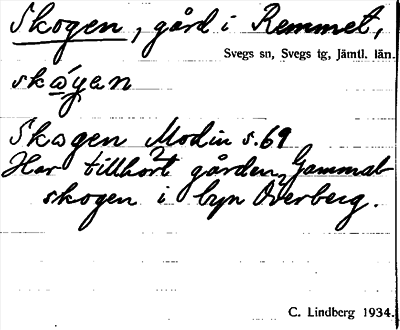 Skogen, gård i Remmet,
Svegs sn, Svegs tg, Jämtl. län.
skω´γən
Skogen Modin s. 69
Har tillhört gården Gammal-
skogen i byn Överberg.
C. Lindberg 1934.